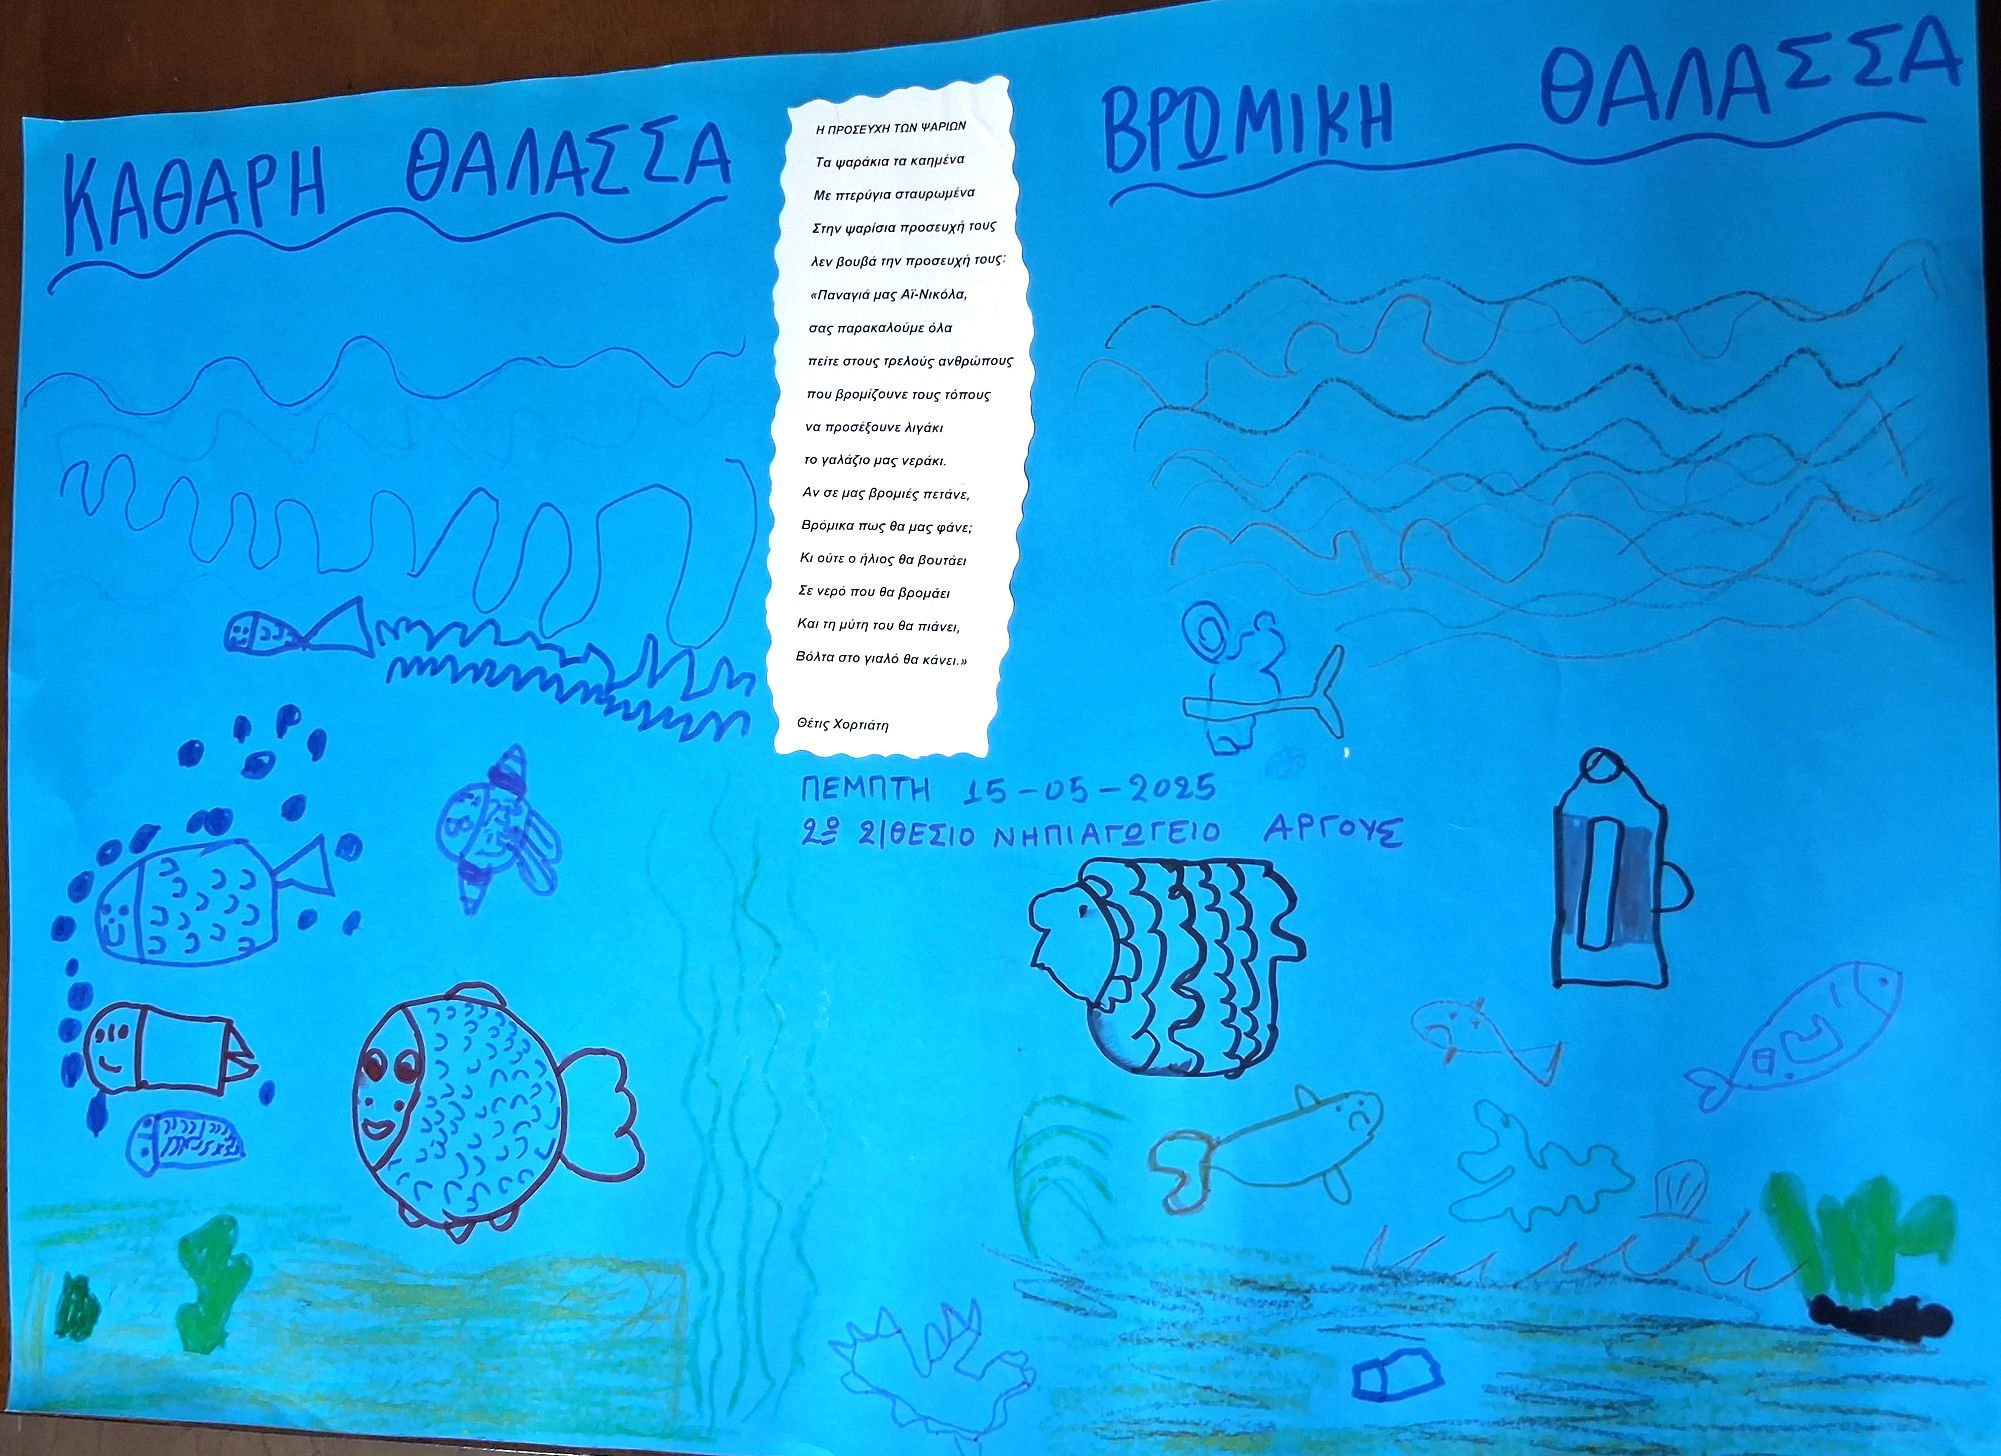 ΚΑΘΑΡΗ ΘΑΛΑΣΣΑ
Η ΠΡΟΣΕΥΧΗ ΤΩΝ ΨΑΡΙΩΝ
Τα ψαράκια τα καημένα
Με πτερύγια σταυρωμένα
Στην ψαρίσια προσευχή τους
λεν βουβά την προσευχή τους:
«Παναγιά μας Αϊ-Νικόλα,
σας παρακαλούμε όλα
πείτε στους τρελούς ανθρώπους
που βρομίζουνε τους τόπους
να προσέξουνε λιγάκι
το γαλάζιο μας νεράκι.
Αν σε μας βρομιές πετάνε,
Βρόμικα πως θα μας φάνε;
Κι ούτε ο ήλιος θα βουτάει
Σε νερό που θα βρομάει
Και τη μύτη του θα πιάνει,
Βόλτα στο γιαλό θα κάνει.»
Θέτις Χορτιάτη
ΒΡΩΜΙΚΗ ΘΑΛΑΣΣΑ
ΠΕΜΠΤΗ 15-05-2025
2º 2/ΘΕΣΙΟ ΝΗΠΙΑΓΩΓΕΙΟ ΑΡΓΟΥΣ